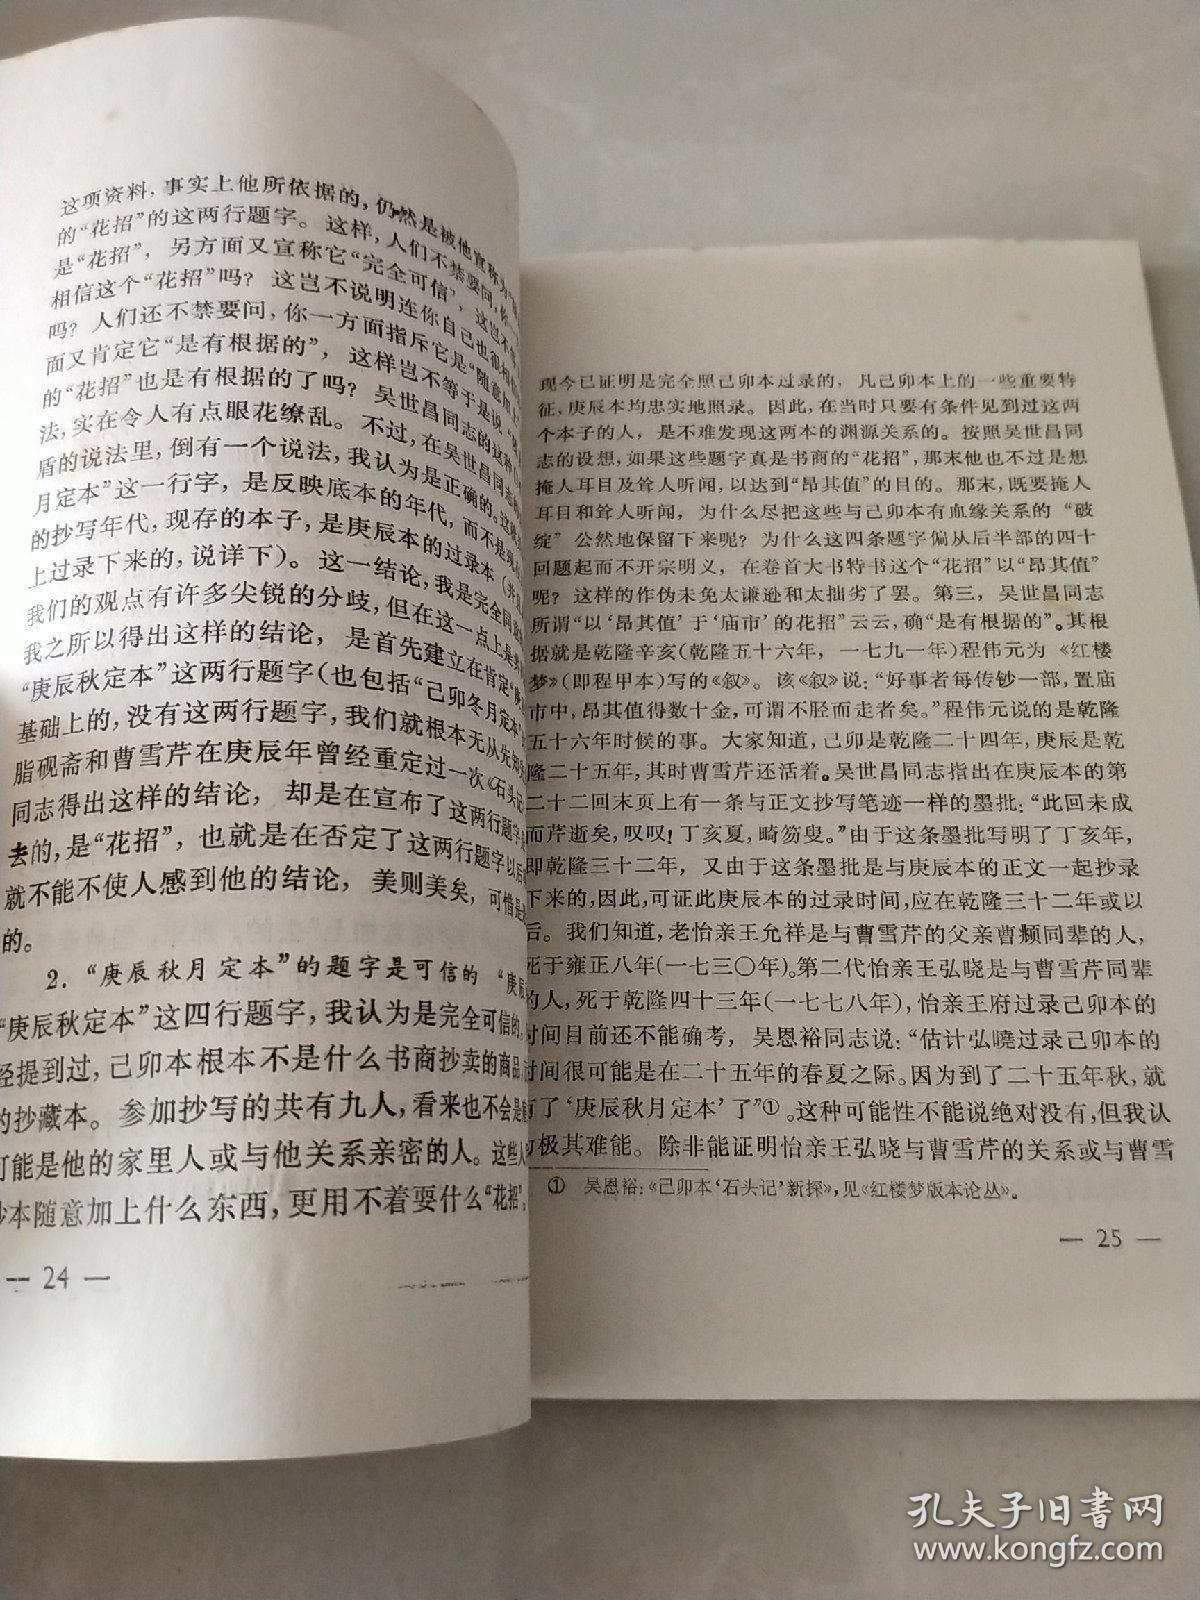 这项资料，事实上他所依据的，仍然是被他宣称为
的“花招”的这两行题字。这样，人们不禁要问，你一
是“花招”，另方面又宣称它“完全可信”，这岂不
相信这个“花招”吗？这岂不说明连你自己也很相
吗？人们还不禁要问，你一方面指斥它是“随意加上
面又肯定它“是有根据的”，这样岂不等于是说
的“花招”也是有根据的了吗？吴世昌同志的这种
法，实在令人有点眼花缭乱。不过，在吴世昌同志
盾的说法里，倒有一个说法，我认为是正确的。这就
月定本”这一行字，是反映底本的年代，而不是现
的抄写年代，现存的本子，是庚辰本的过录本
上过录下来的，说详下）。这一结论，我是完全同
我们的观点有许多尖锐的分歧，但在这一点上是
我之所以得出这样的结论，是首先建立在肯定“庚
“庚辰秋定本”这两行题字（也包括“己卯冬月定本”
基础上的，没有这两行题字，我们就根本无从先知
脂砚斋和曹雪芹在庚辰年曾经重定过一次《石头记
同志得出这样的结论，却是在宣布了这两行题字
去的，是“花招”，也就是在否定了这两行题字以后
就不能不使人感到他的结论，美则美矣，可惜是
的。
2．“庚辰秋月定本”的题字是可信的 “庚辰
“庚辰秋定本”这四行题字，我认为是完全可信的，
经提到过，己卯本根本不是什么书商抄卖的商品，
的抄藏本。参加抄写的共有九人，看来也不会是
可能是他的家里人或与他关系亲密的人。这些人
抄本随意加上什么东西，更用不着耍什么“花招”，
— 24 —
现今已证明是完全照己卯本过录的，凡己卯本上的一些重要特
征、庚辰本均忠实地照录。因此，在当时只要有条件见到过这两
个本子的人，是不难发现这两本的渊源关系的。按照吴世昌同
志的设想，如果这些题字真是书商的“花招”，那末他也不过是想
掩人耳目及耸人听闻，以达到“昂其值”的目的。那末，既要掩人
耳目和耸人听闻，为什么尽把这些与己卯本有血缘关系的“破
绽”公然地保留下来呢？为什么这四条题字偏从后半部的四十
回题起而不开宗明义，在卷首大书特书这个“花招”以“昂其值”
呢？这样的作伪未免太谦逊和太拙劣了罢。第三，吴世昌同志
所谓“以‘昂其值’于‘庙市’的花招”云云，确“是有根据的”。其根
据就是乾隆辛亥（乾隆五十六年，一七九一年）程伟元为《红楼
梦》（即程甲本）写的《叙》。该《叙》说：“好事者每传钞一部，置庙
市中，昂其值得数十金，可谓不胫而走者矣。”程伟元说的是乾隆
五十六年时候的事。大家知道，己卯是乾隆二十四年，庚辰是乾
隆二十五年，其时曹雪芹还活着。吴世昌同志指出在庚辰本的第
二十二回末页上有一条与正文抄写笔迹一样的墨批：“此回未成
而芹逝矣，叹叹！丁亥夏，畸笏叟。”由于这条墨批写明了丁亥年，
即乾隆三十二年，又由于这条墨批是与庚辰本的正文一起抄录
下来的，因此，可证此庚辰本的过录时间，应在乾隆三十二年或以
后。我们知道，老怡亲王允祥是与曹雪芹的父亲曹頫同辈的人，
死于雍正八年（一七三〇年）。第二代怡亲王弘晓是与曹雪芹同辈
的人，死于乾隆四十三年（一七七八年），怡亲王府过录己卯本的
时间目前还不能确考，吴恩裕同志说：“估计弘曉过录己卯本的
时间很可能是在二十五年的春夏之际。因为到了二十五年秋，就
有了‘庚辰秋月定本’了”①。这种可能性不能说绝对没有，但我认
可极其难能。除非能证明怡亲王弘晓与曹雪芹的关系或与曹雪
① 吴恩裕：《己卯本‘石头记’新探》，见《红楼梦版本论丛》。
— 25 —
孔夫子旧书网
www.kongfz.com